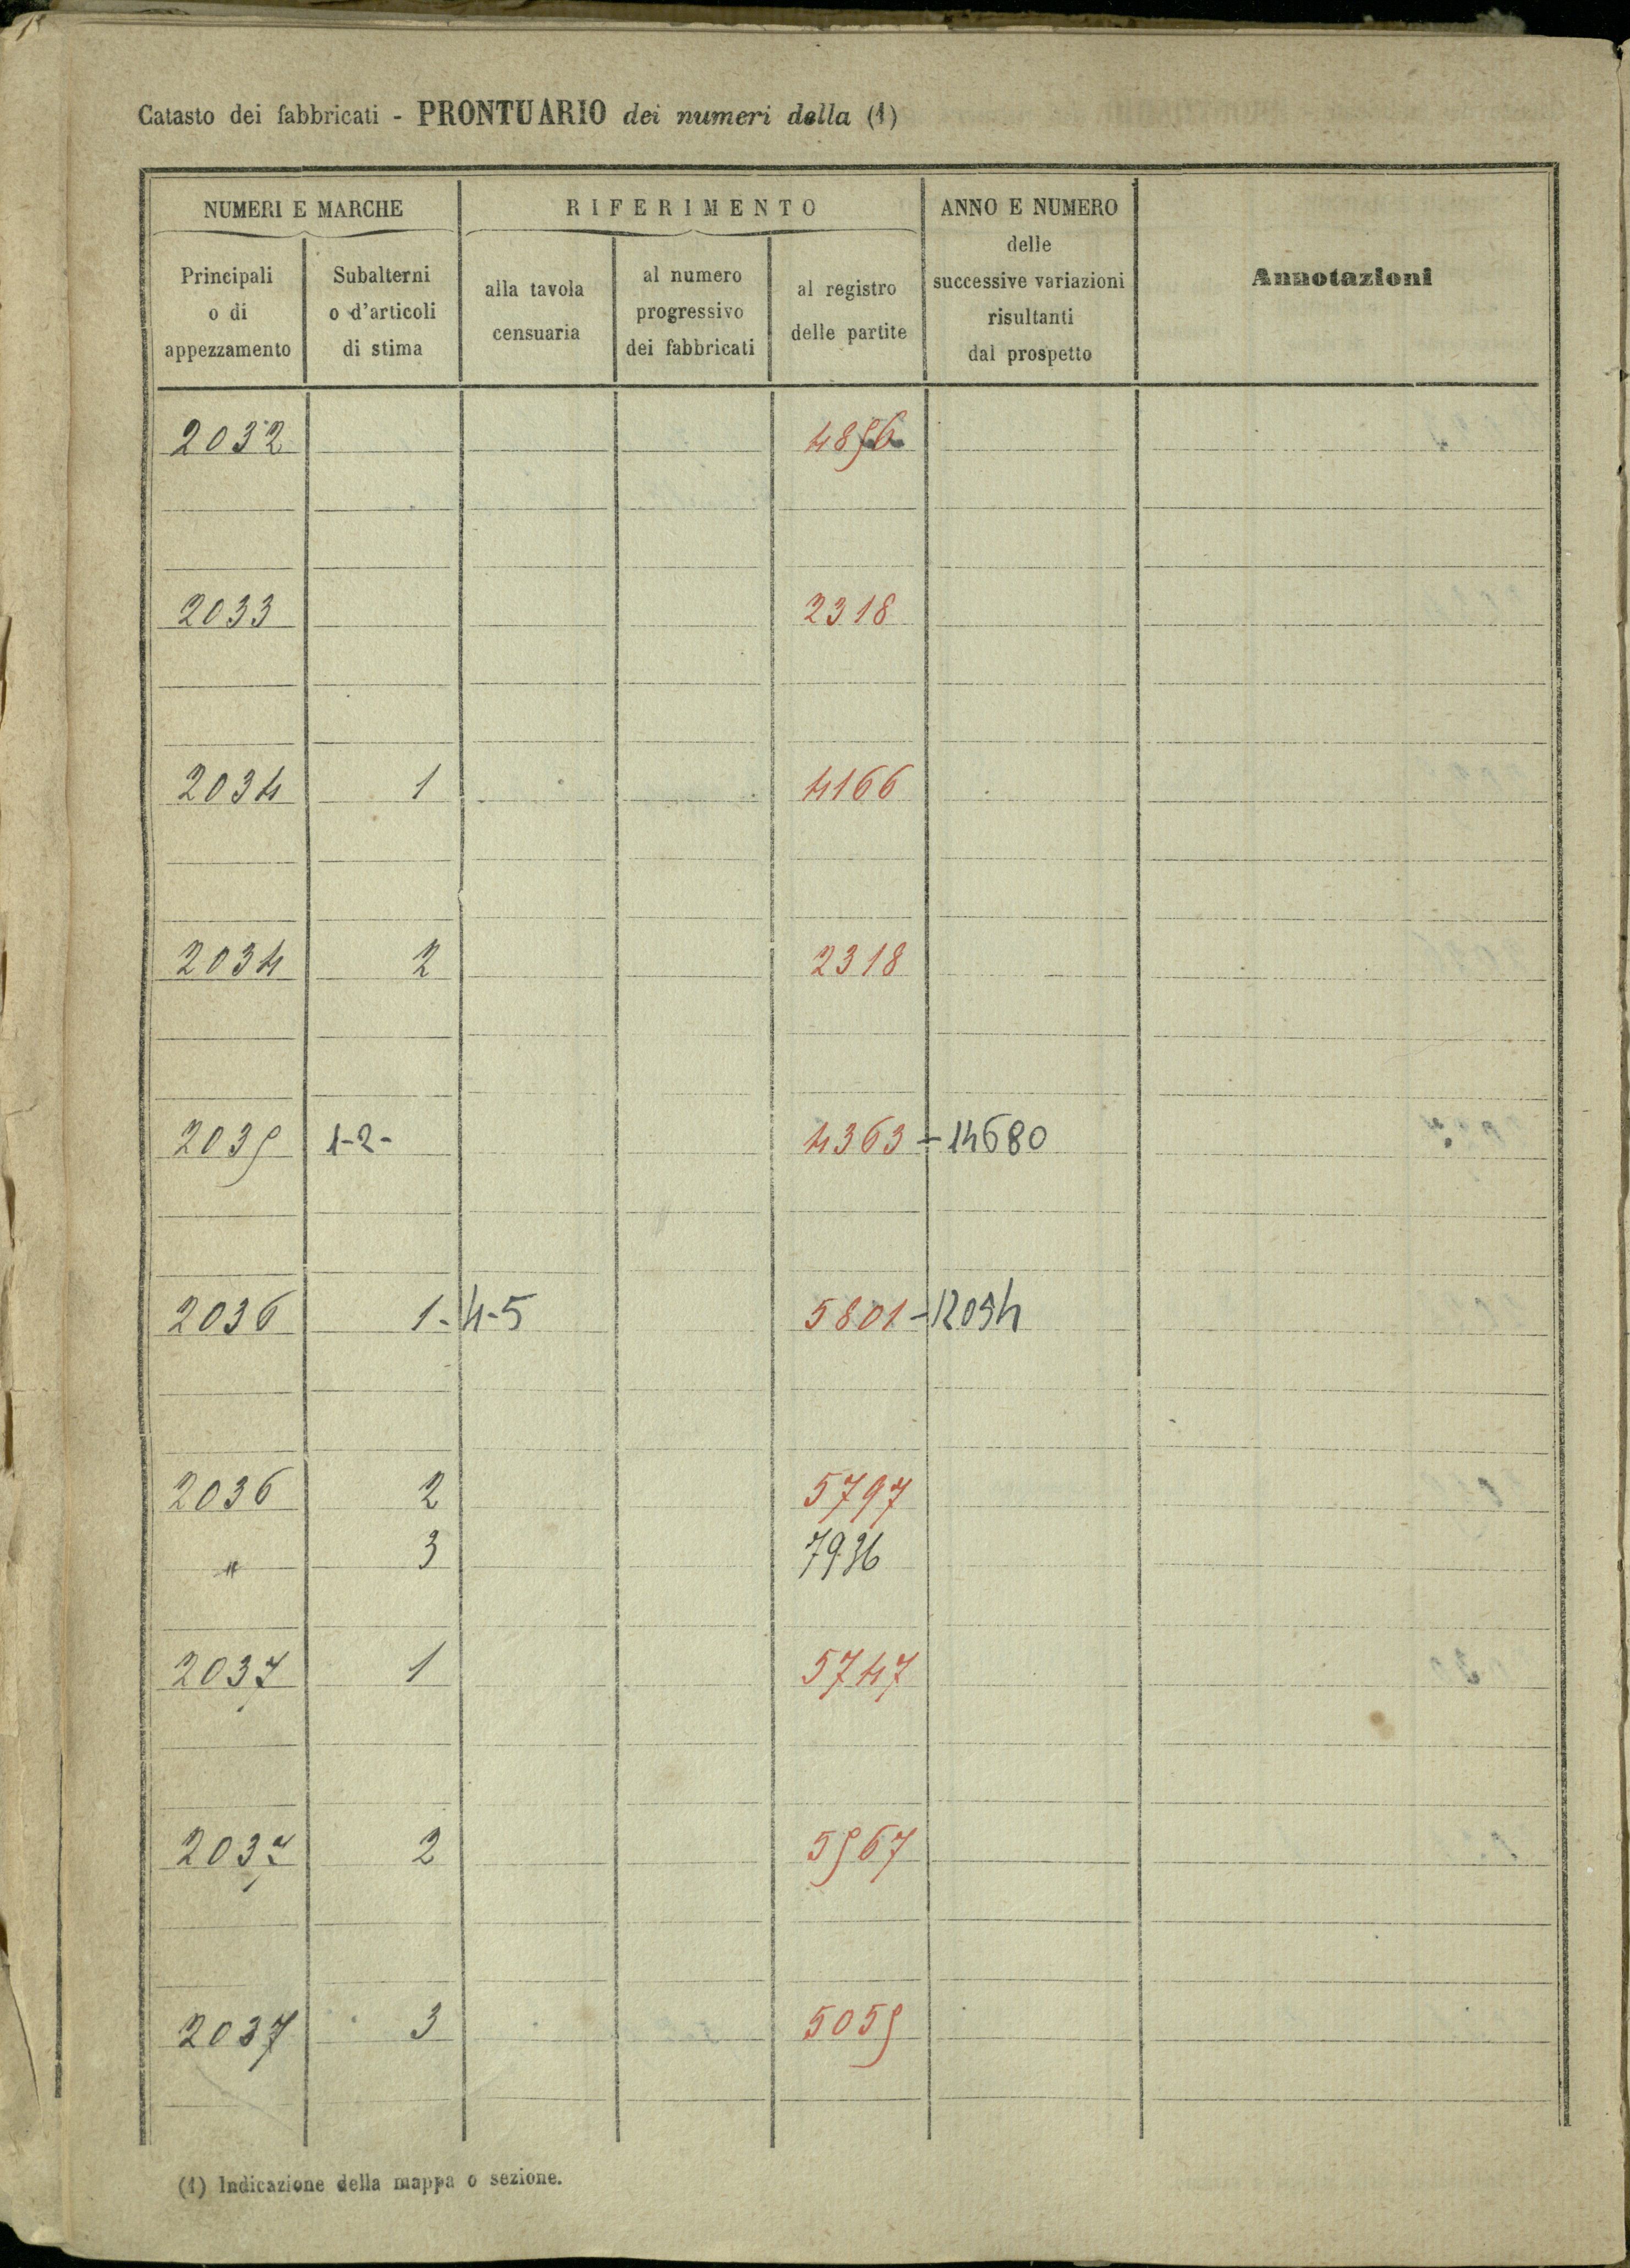 Catasto dei fabbricati - PRONTUARIO dei numeri della (1)
NUMERI E MARCHE RIFERIMENTO ANNO E NUMERO delle successive variazioni risultanti dal prospetto Annotazioni
Principali o di appezzamento Subalterni o d'articoli di stima alla tavola censuaria al numero progressivo dei fabbricati al registro delle partite
2032 4856
2033 2318
2034 1 4166
2034 2 2318
2035 1-2- 4363 - 14680
2036 1-4-5 5801 - 12054
2036 2 5797
" 3 7936
2037 1 5747
2037 2 5567
2037 3 5055
(1) Indicazione della mappa o sezione.